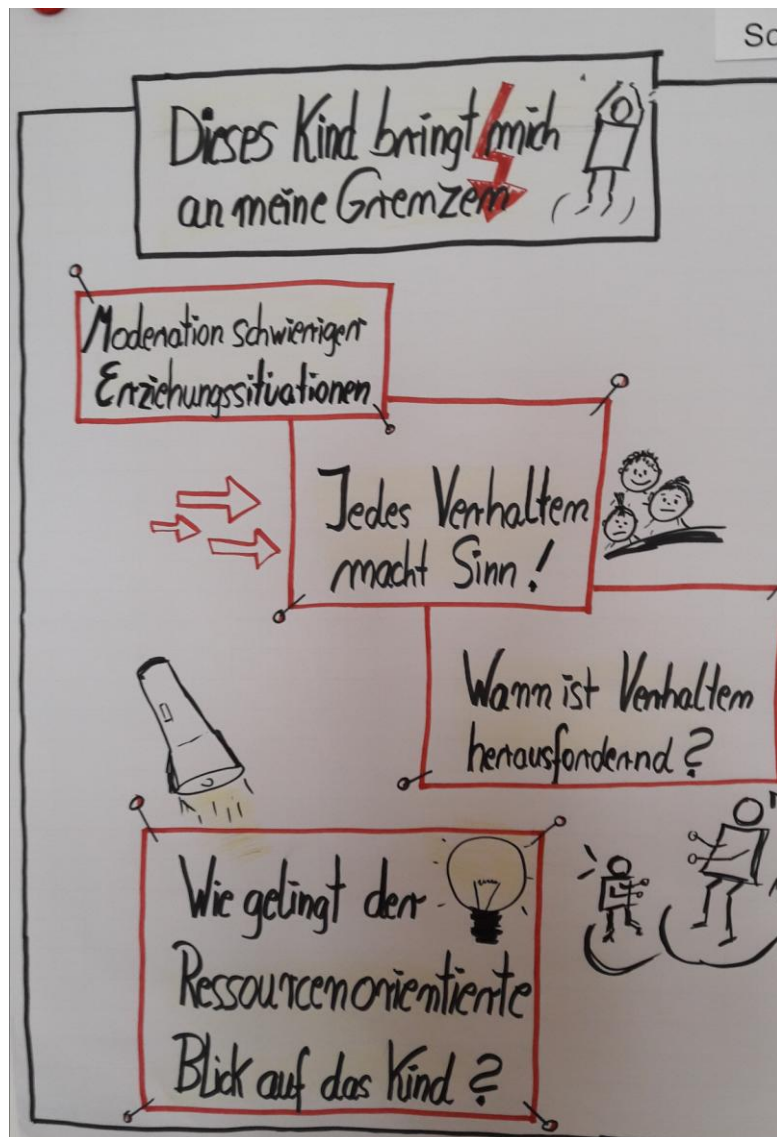 Dieses Kind bringt mich
an meine Grenzen
Moderation schwieriger
Erziehungssituationen
Jedes Verhalten
macht Sinn!
Wann ist Verhalten
herausfordernd?
Wie gelingt der
Ressourcenorientierte
Blick auf das Kind?